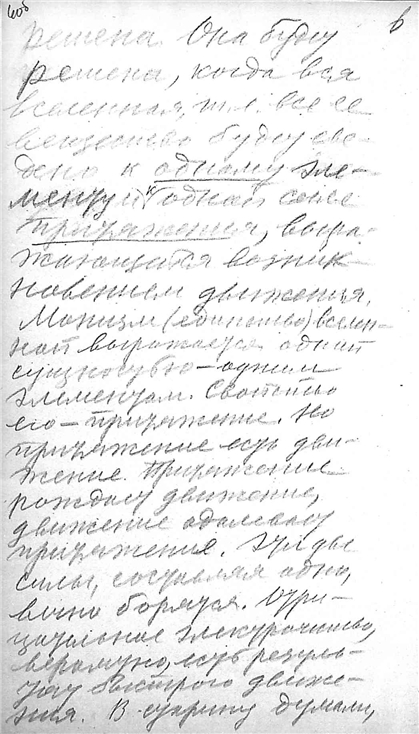 6
решена. Она будет
решена, когда вся
вселенная, т.е. все ее
вещество будет све-
дено к одному эле-
менту и к одной силе
притяжения, выра-
жающейся возник-
новением движения.
Монизм (единство) вселен-
ной выражается одной
сущностью – одним
элементом. Свойство
его – притяжение. Но
притяжение есть дви-
жение. Притяжение
рождает движение,
движение одолевает
притяжение. Эти две
силы, составляя одно,
вечно борятся. Отри-
цательное электричество,
вероятно, есть резуль-
тат быстрого движе-
ния. В старину думали,